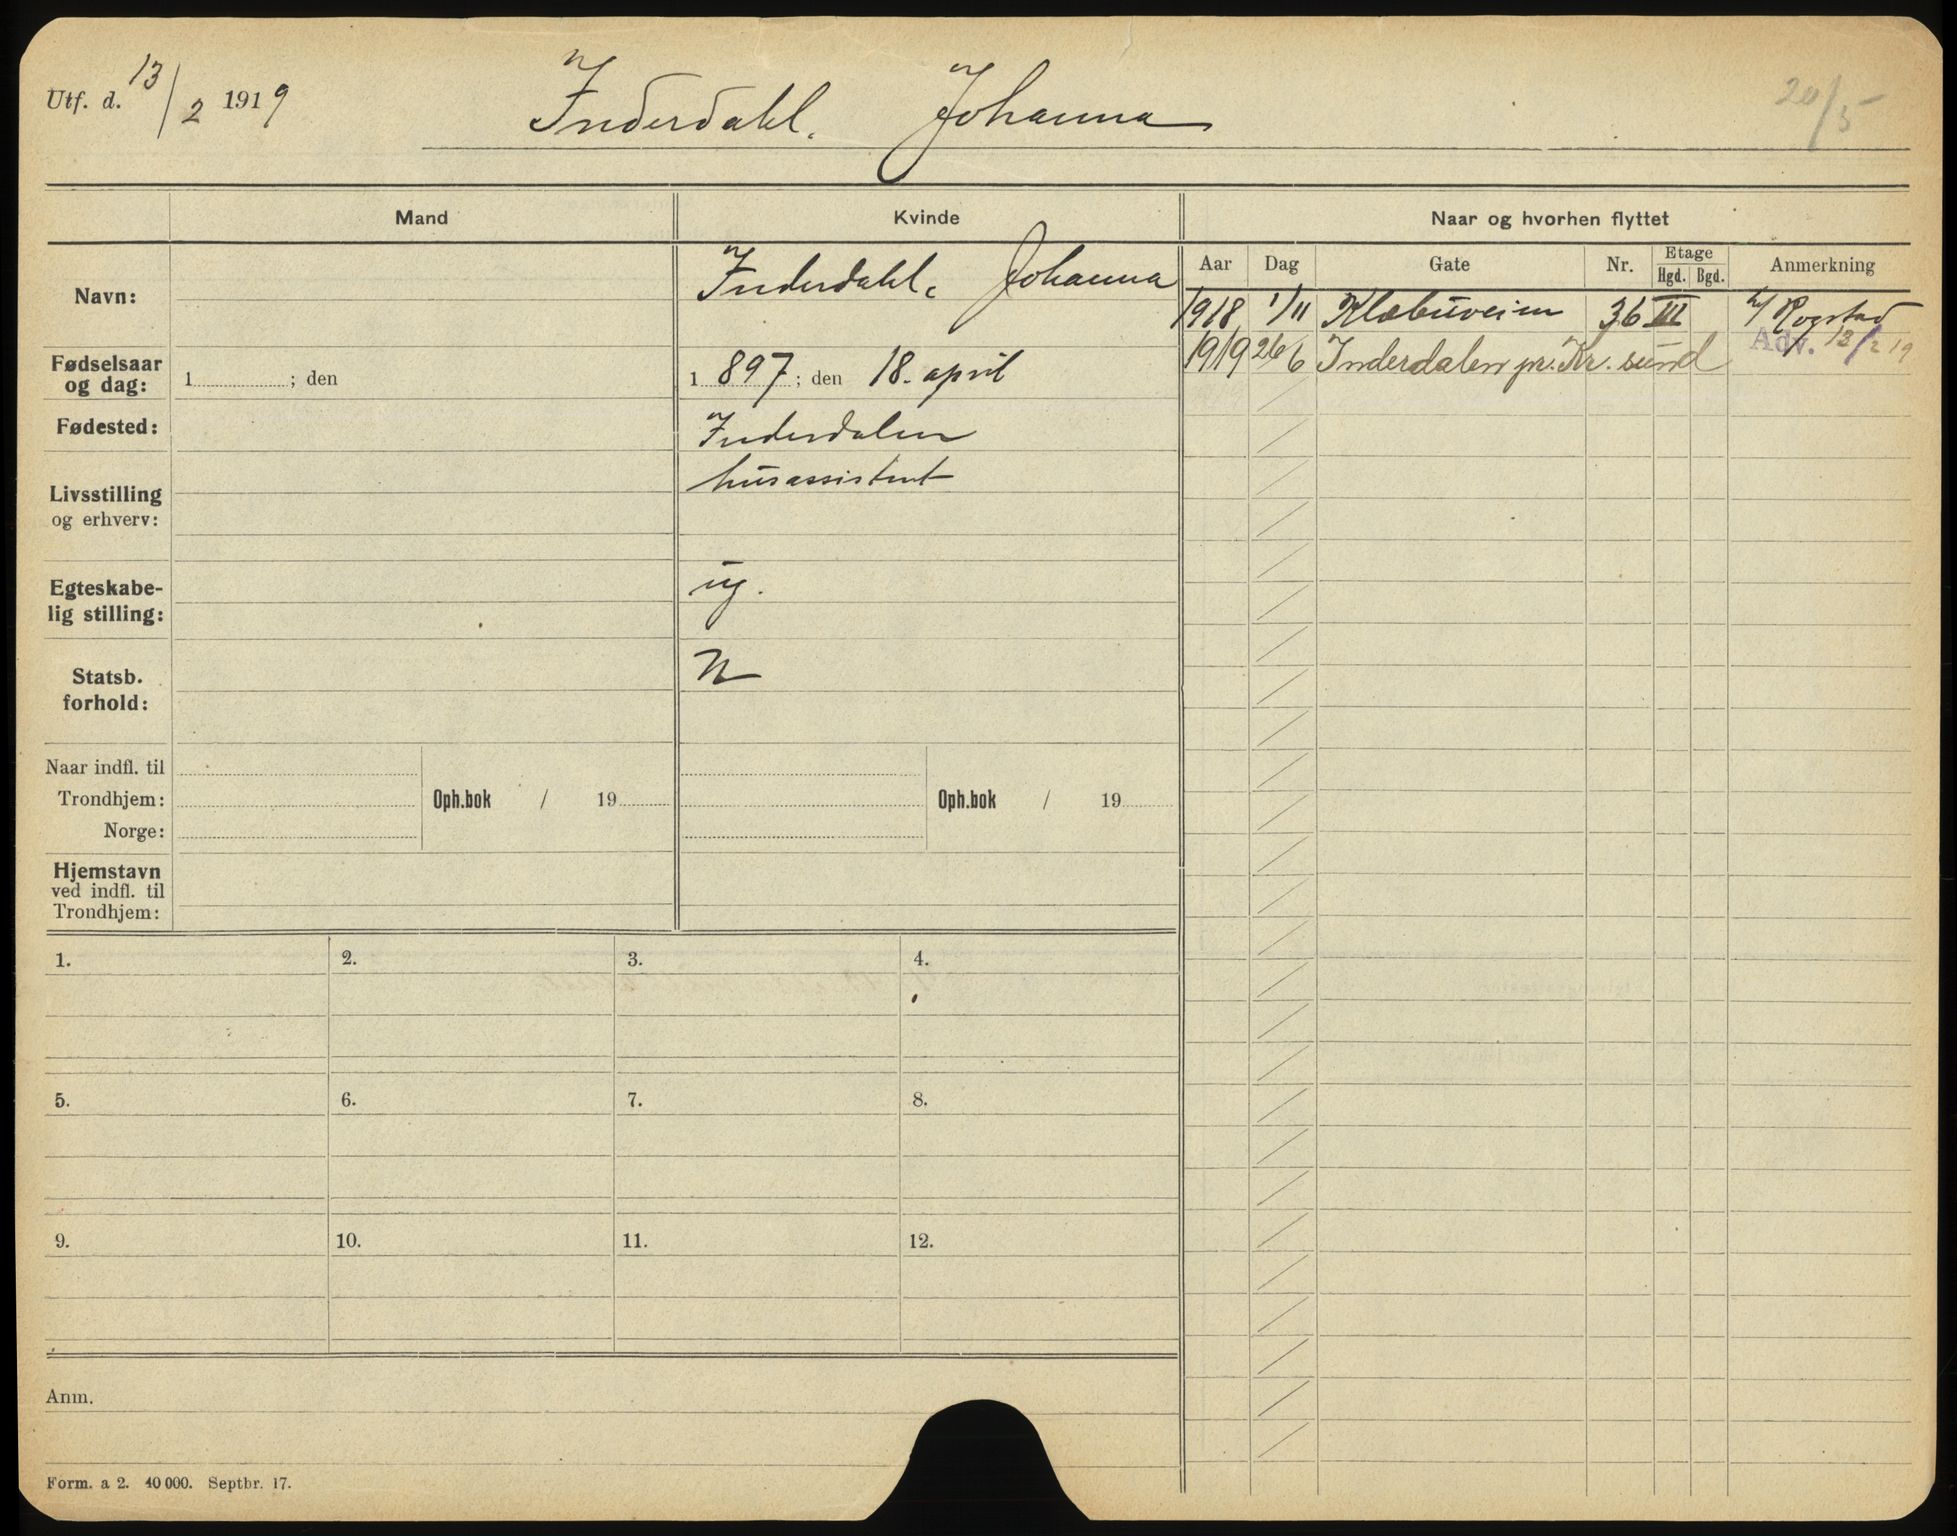 Utf. d. 13/2 1919 Inderdahl, Johanna 20/5
Mand Kvinde Naar og hvorhen flyttet
Navn: Inderdahl, Johanna
Aar Dag Gate Nr. Etage Hgd. Bgd. Anmerkning
1918 1/11 Klæbuveien 36 III h/ Rogstad
Adv. 13/2 19
1919 26/6 Inderdalen pr. Kr. sund
Fødselsaar og dag: 1 ; den 1 897 ; den 18. april
Fødested: Inderdalen
Livsstilling og erhverv: husassistent
Egteskabe-
lig stilling: ug.
Statsb. forhold: N
Naar indfl. til
Trondhjem: Oph.bok / 19 Oph.bok / 19
Norge:
Hjemstavn
ved indfl. til
Trondhjem:
1. 2. 3. 4.
5. 6. 7. 8.
9. 10. 11. 12.
Anm.
Form. a 2. 40 000. Septbr. 17.